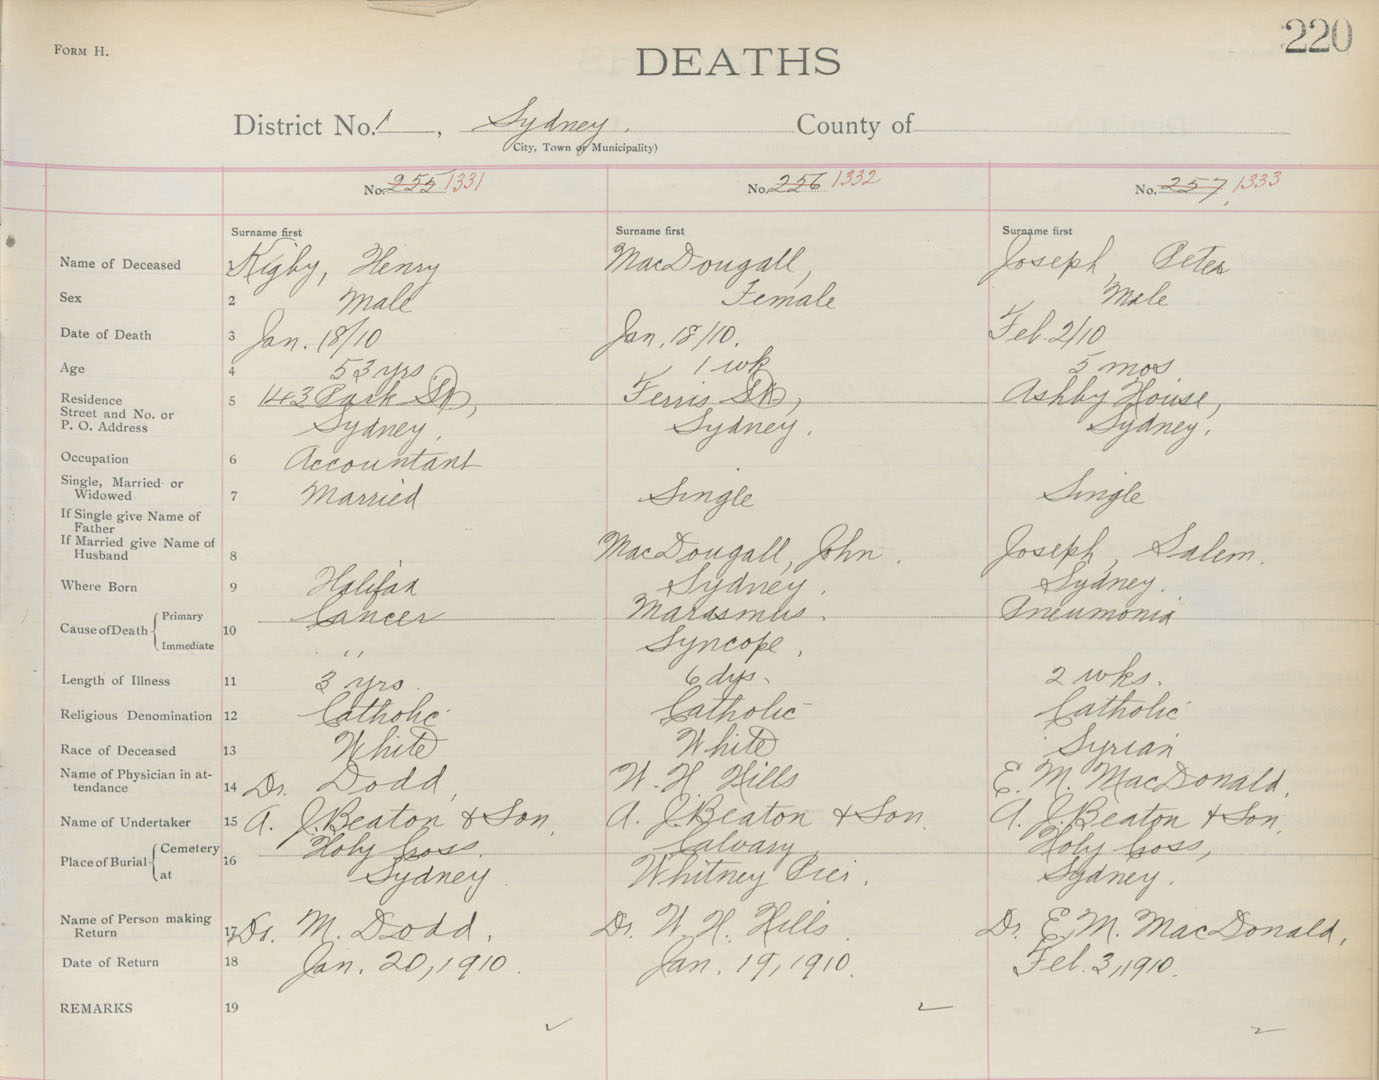 220
FORM H.
DEATHS
District No. 1, Sydney. County of
City, Town or Municipality)
No. 255 1331 No. 256 1332 No. 257, 1333
Surname first Surname first Surname first
Name of Deceased 1 Kigby, Henry MacDougall, Joseph, Peter
Sex 2 Male Female Male
Date of Death 3 Jan. 18/10 Jan. 18/10. Feb. 2/10
Age 4 53 yrs. 1 wk 5 mos
Residence 5 143 Park St, Ferris St, Ashby House,
Street and No. or
P. O. Address Sydney. Sydney. Sydney.
Occupation 6 Accountant
Single, Married or
Widowed 7 Married Single Single
If Single give Name of
Father
If Married give Name of
Husband 8 MacDougall, John. Joseph, Salem.
Where Born 9 Halifax Sydney. Sydney.
Cause of Death 10 Primary Cancer Marasmus. Pneumonia
Immediate " Syncope.
Length of Illness 11 3 yrs. 6 dys. 2 wks.
Religious Denomination 12 Catholic Catholic Catholic
Race of Deceased 13 White White Syrian
Name of Physician in at-
tendance 14 Dr. Dodd, W. H. Hills E. M. MacDonald,
Name of Undertaker 15 A. J. Beaton & Son, A. J. Beaton & Son. A. J. Beaton & Son,
Place of Burial 16 Cemetery Holy Cross. Calvary, Holy Cross,
at Sydney Whitney Pier. Sydney.
Name of Person making
Return 17 Dr. M. Dodd. Dr. W. H. Hills. Dr. E. M. MacDonald,
Date of Return 18 Jan. 20, 1910. Jan. 19, 1910. Feb. 3, 1910.
REMARKS 19